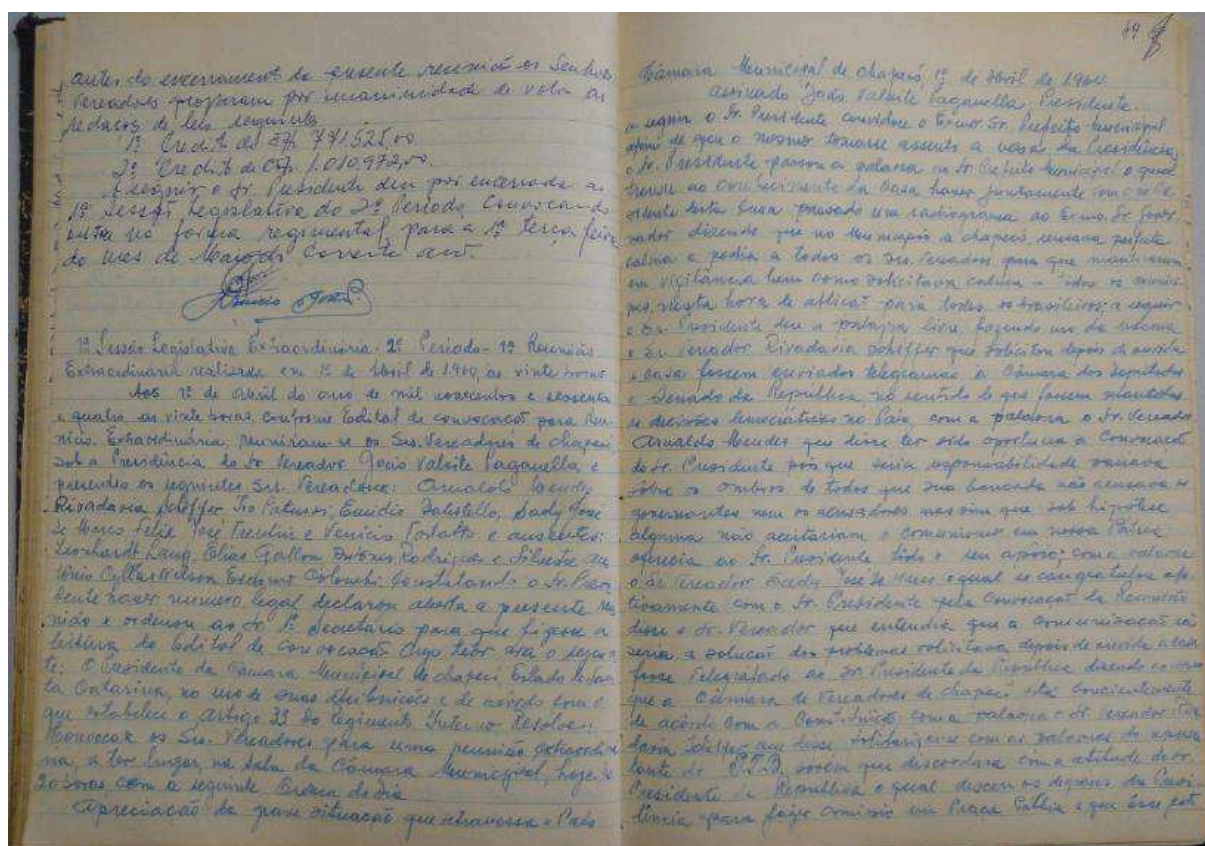 antes do encerramento da presente reunião os Senhores
Vereadores propuseram por unanimidade de votos as
redações de leis seguintes
1º Credito de Cr$ 771.525,00
2º Credito de Cr$ 1.010.972,00
A seguir o Sr. Presidente deu por encerrada a
1ª Sessão Legislativa do 2º Período Convocando
outra na forma regimental para a 1ª terça feira
do mes de Março do Corrente ano.
1ª Sessão Legislativa Extraordinária - 2º Período - 1ª Reunião
Extraordinária realizada em 1º de Abril de 1964, as vinte horas
Aos 1º de Abril do ano de mil novecentos e sessenta
e quatro, as vinte horas, conforme Edital de convocação para Reu-
nião Extraordinária, reuniram-se os Srs. Vereadores de Chapecó,
sob a Presidência do Sr Vereador João Valvite Paganella e
presentes os seguintes Srs. Vereadores: Arnaldo Mendes
Rivadavia Scheffer, Ivo Patussi, Sady José
de Marco, José e Venicio e ausentes:
Leonhardt Lang, Elias Gallon, Antonio Rodrigues e Silvestre An
tônio Cella, Wilson Constatando o Sr. Presi
dente haver numero legal declarou aberta a presente Reu
nião e ordenou ao Sr. 1º Secretário para que fizesse a
leitura do Edital de convocação cujo teor era o seguin
te: O Presidente da Câmara Municipal de Chapecó, Estado de San
ta Catarina, no uso de suas atribuições e de acordo com o
que estabelece o Artigo 33 do Regimento Interno Resolve:
Convocar os Srs. Vereadores para uma reunião extraordiná
ria, a ter lugar, na sala da Câmara Municipal, hoje as
20 horas com a seguinte Ordem do dia
Apreciação da grave situação que atravessa o País
49
Câmara Municipal de Chapecó, 1º de Abril de 1964
assinado João Valvite Paganella, Presidente.
a seguir o Sr. Presidente convidou o Exmo. Sr. Prefeito Municipal
afim de que o mesmo tomasse assento a mesa da Presidência,
o Sr. Presidente passou a palavra ao Sr Prefeito Municipal o qual
trouxe ao conhecimento da Casa haver juntamente com o Pre
sidente desta Casa passado um radiograma ao Exmo. Sr. Gover
nador dizendo que no Municipio de Chapecó, reinava perfeita
calma e pedia a todos os Srs. Vereadores para que mantivessem
em vigilância bem como solicitava calma a todos os
nesta hora de aflição para todos os brasileiros; a seguir
o Sr. Presidente deu a palavra livre, fazendo uso da mesma
o Sr. Vereador Rivadavia Scheffer que solicitou depois de ouvida
a Casa fossem enviados telegramas à Câmara dos Deputados
e Senado da República, no sentido de que fossem mantidas
as decisões democráticas no País, com a palavra o Sr. Vereador
Arnaldo Mendes que disse ter sido oportuna a Convocação
do Sr. Presidente pois que seria responsabilidade
sôbre os ombros de todos que sua bancada não acusava os
governantes nem os acusadores mas sim que sob hipótese
alguma não aceitariam o comunismo em nossa Pátria
oferecia ao Sr. Presidente todo o seu apoio; com a palavra
o Sr Vereador Sady José de Marco o qual se congratulou efe
tivamente com o Sr. Presidente pela Convocação da Reunião
disse o Sr. Vereador que entendia que a comunização não
seria a solução dos problemas solicitava depois de ouvida a Casa
fosse Telegrafado ao Sr. Presidente da República dizendo ao mesmo
que a Câmara de Vereadores de Chapecó está conscientemente
de acôrdo com a Constituição com a palavra o Sr. Vereador Riva
davia Scheffer que disse solidarizar-se com as palavras do represen
tante do P.T.B. porem que discordava com a atitude do Sr.
Presidente da Republica o qual desceu os degraus da Presi
dência para fazer comicio em Praça Publica e que êsse